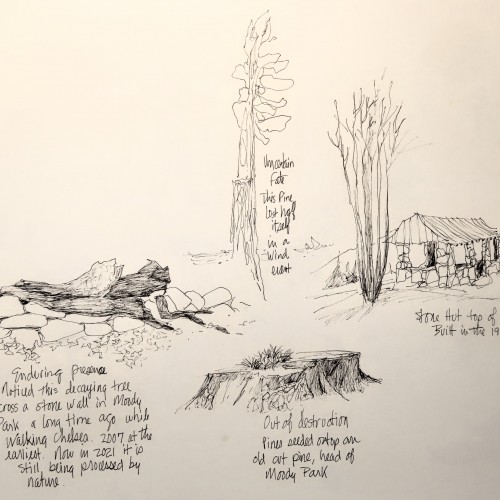 Uncertain
Fate
This Pine
lost half
itself
in a
wind
event
Stone Hut top of
Built in the 19
Enduring presence
Noticed this decaying tree
cross a stone wall in Moody
Park a long time ago while
Walking Chelsea. 2007 at the
earliest. Now in 2021 it is
still, being processed by
nature.
Out of destruction
Pines seeded ontop an
old cut pine, head of
Moody Park